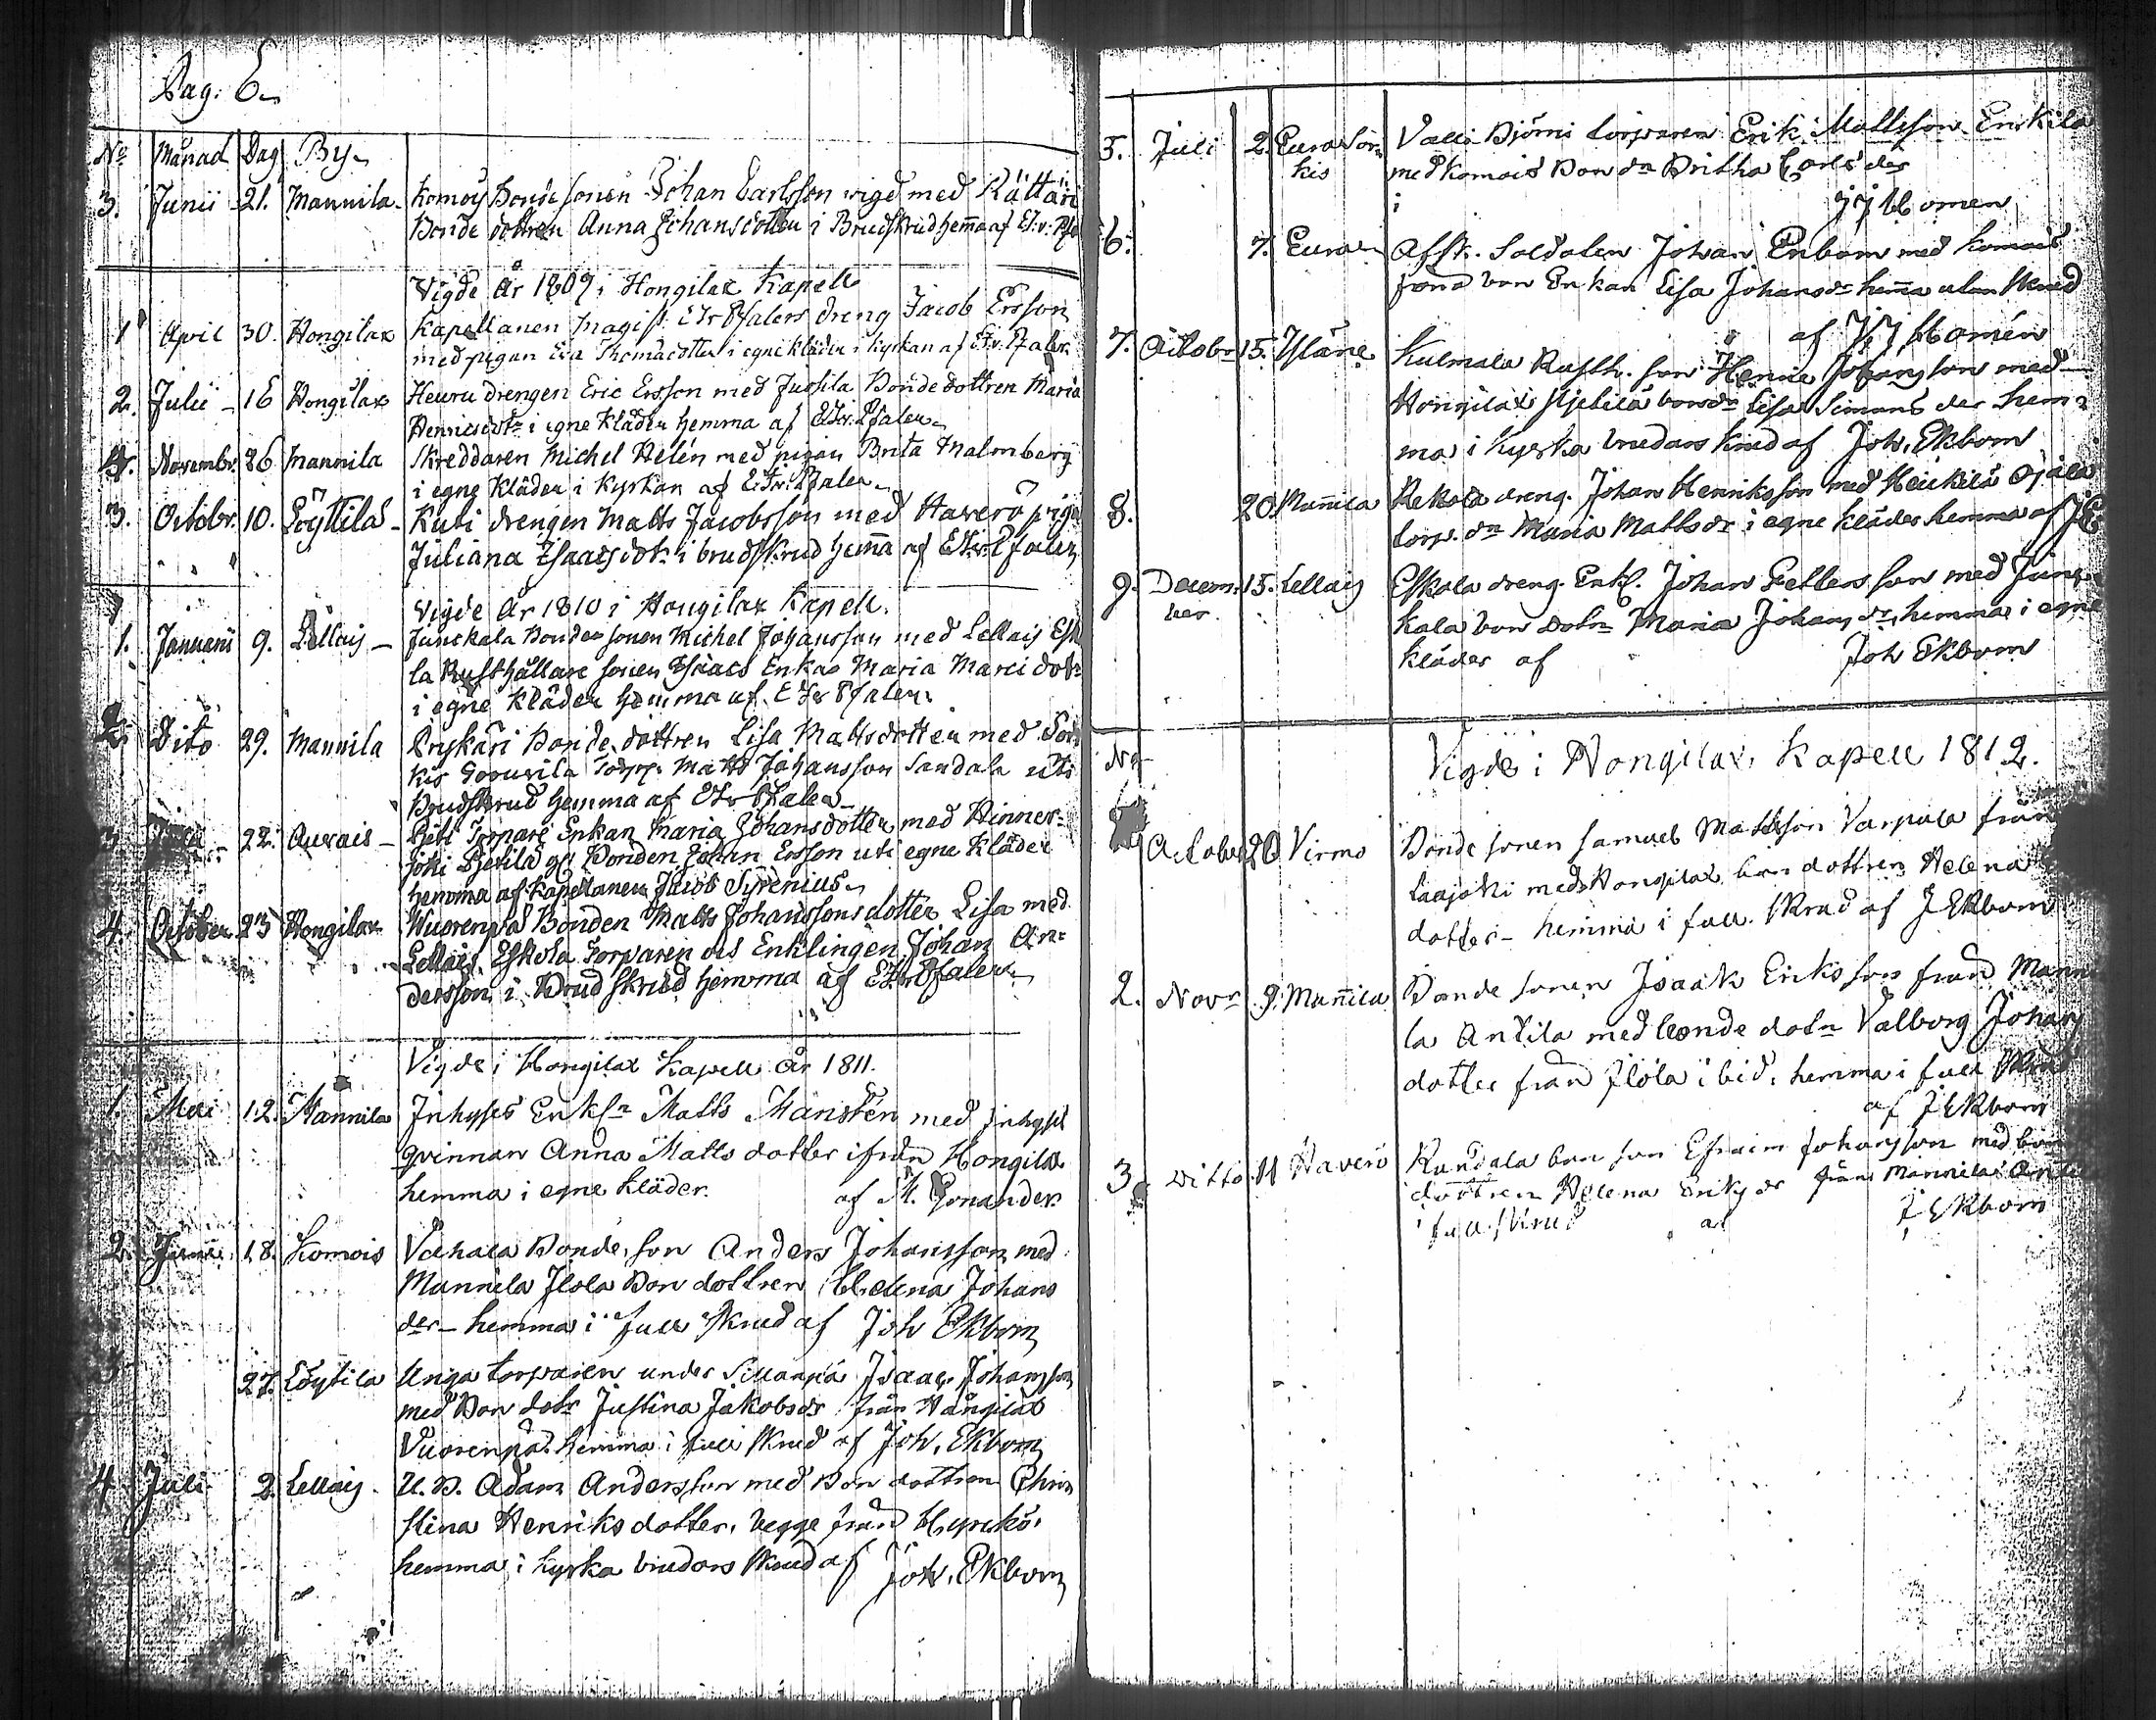 Pag: 6.
No Månad Dag By
3. Junii 21. Mannila Komois Bonde sonen Johan Carlsson vigd med Rättäri
Bonde dottren Anna Johansdotter i Brudskrud hemma af
Vigde År 1809 i Hongilax Kapell
1 April 30. Hongilax Kapellanen Magist. dreng Jacob Ersson
med pigan Eva Thomædotter i egne kläder i kyrkan af
2. Julii 16 Hongilax Heuru drengen Eric Ersson med Jussila Bonde dottren Maria
Henricsdotr i egne kläder hemma af
4. Novembr. 26 Mannila Skreddaren Michel Helén med pigan Brita Malmberg
i egne kläder i Kyrkan af
3. Octobr. 10. Löyttilä Kuti drengen Matts Jacobsson med Haverö piga
Juliana Isaacsdotr i brudskrud hemma af
Vigde År 1810 i Hongilax Kapell.
1. Januarii 9. Lellais Junckala Bonde sonen Michel Johansson med Lellais Esko
la Rusthållare sonen Isaacs Enka Maria Marci dotr
i egne kläder hemma af
2. Dito 29. Mannila Bonde dottren Lisa Mattsdotter med Sor
kis Torp. Matts Johansson Sandala uti
Brudskrud hemma af
3. 22. Aurais Torpare Enkan Maria Johansdotter med Hinner-
joki Bonden Johan Ersson uti egne kläder
hemma af Kapellanen Jacob Syrenius
4. October 23 Hongilax Wuorenpä Bonden Matts Johanssons dotter Lisa med
Lellais Eskola Torparen och Enklingen Johan An-
dersson i Brudskrud hemma af
Vigde i Hongilax Kapell År 1811.
1. Mai 12. Mannila Inhyses Enkl. Matts Manstén med Inhyses
qvinnan Anna Matts dotter ifrån Hongilax
hemma i egne kläder. af M. Gonander.
2. Junii 18. Komois Vahala Bonde son Anders Johansson med
Mannila Ilola Bon dottren Helena Johans
der hemma i full skrud af Joh Ekbom
3 27. Löytila Unga torparen under Sillanpä Isaac Johansson
med Bon dotr Justina Jakobsdr från Hångilax
Vuorenpä hemma i full skrud af Joh. Ekbom
4 Juli 2. Lellais U. B. Adam Andersson med Bon dottren Chri
stina Henriksdotter, begge från Hyrckö,
hemma i kyrko brudars skrud af Joh. Ekbom
5. Juli 2. Eura Sor= Valli Björni torparen Erik Mattsson Enkila
kis med Komois Bon dr Britha Carls der
i JJ Homén
6. 7. Eura Afsk. Soldaten Johan Enbom med Komois
bon Enkan Lisa Johansdr hemma utan skrud
af JJ Homén
7. Octobr 15. Yläne Kulmala Rusth. son Henric Johansson med
Hongilax bondr Lisa Simons der hem=
ma i kyrko brudars skrud af Joh. Ekbom
8. 20 Mannila Rekola dreng. Johan Henriksson med Heickilä Ojala
torp. dr Maria Mattsdr i egne kläder hemma af JE
9. Decem= 15. Lellais Eskola dreng. Enkl. Johan Gellersson med Junc=
ber kala bon dotr Maria Johansdr, hemma i egne
kläder af Joh Ekbom
No Vigde i Hongilax Kapell 1812.
October 20 Virmo Bonde sonen Samuel Mattsson Varpula från
Laajoki med Hongilax bon dottren Helena
dotter hemma i full skrud af J Ekbom
2. Novr 9. Mannila Bonde sonen Isaak Eriksson från Manni
la Antila med bonde dotr Valborg Johans
dotter från Ilola ibid. hemma i full skrud
af J Ekbom
3. ditto 11 Haverö Kandala bon son Efraim Johansson med bon
dottren Helena Eriksdr från Mannila Antila
i full skrud af J Ekbom